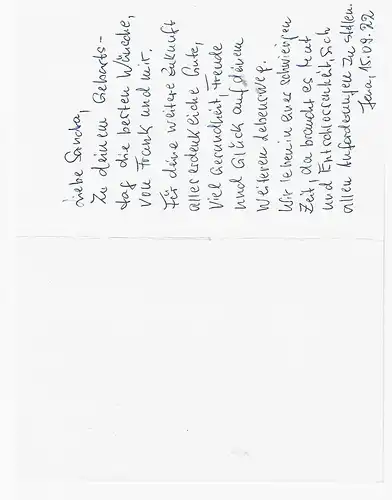 Liebe Sandra,
Zu deinem Geburts-
tag die besten Wünsche,
von Frank und mir.
Für deine weitere Zukunft
alles erdenkliche Gute,
viel Gesundheit, Freude
und Glück auf deinem
weiteren Lebensweg.
Wir leben in einer schwierigen
Zeit, da braucht es Mut
und Entschlossenheit, sich
allen Anforderungen zu stellen.
Jena, 15.09.22